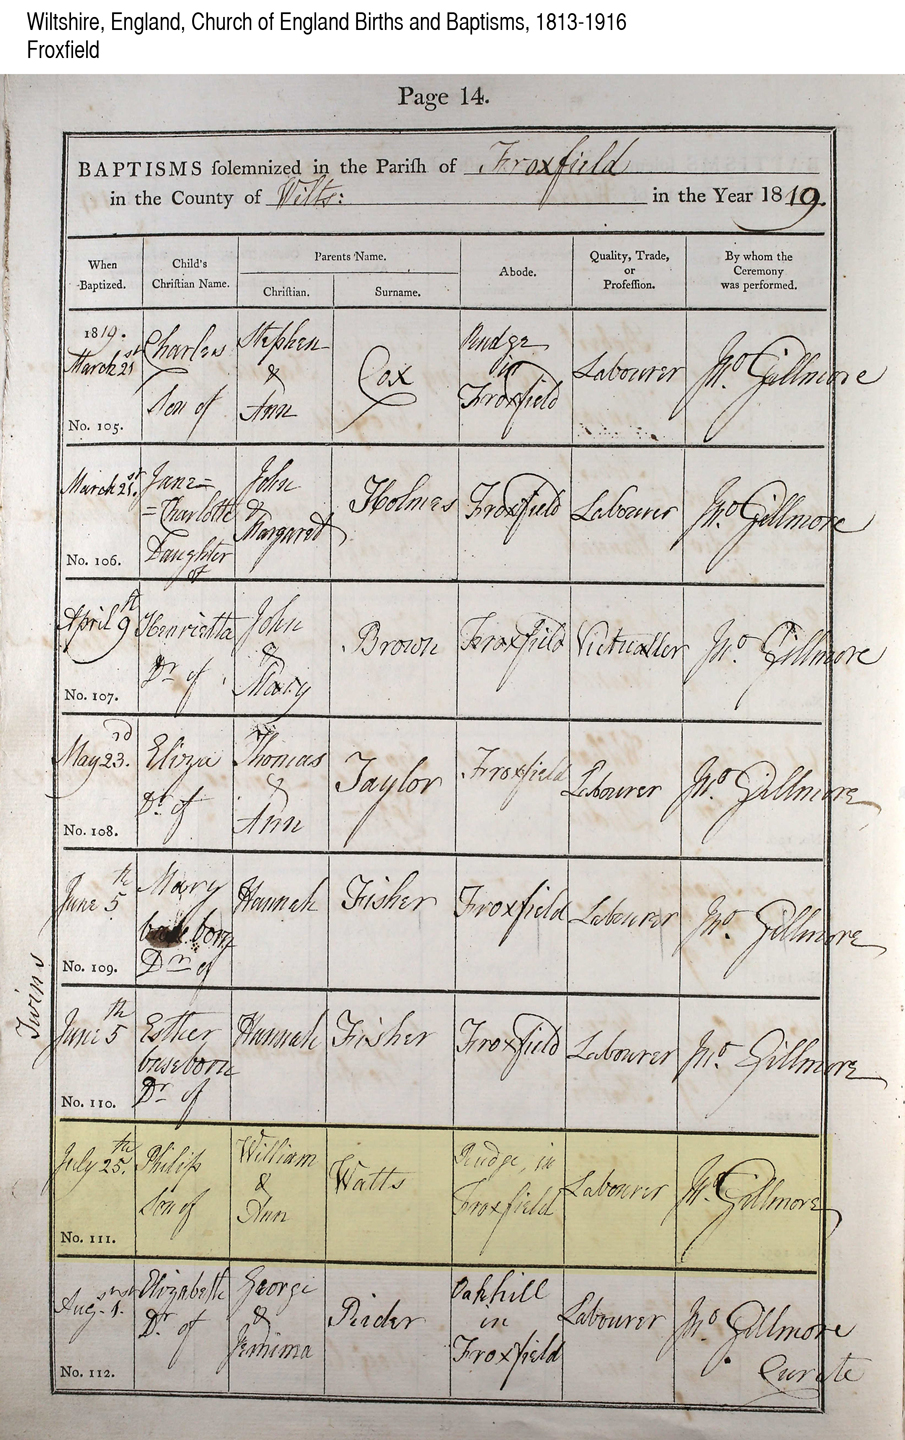 Wiltshire, England, Church of England Births and Baptisms, 1813-1916
Froxfield
Page 14.
BAPTISMS solemnized in the Parish of Froxfield
in the County of Wilts: in the Year 1819.
When Baptized.
Child's Christian Name.
Parents Name.
Christian.
Surname.
Abode.
Quality, Trade, or Profession.
By whom the Ceremony was performed.
1819.
March 21st
No. 105.
Charles
Son of
Stephen
&
Ann
Cox
Rudge
in
Froxfield
Labourer
Jno. Gillmore
March 21st.
No. 106.
Jane=
=Charlotte
Daughter
of
John
&
Margaret
Holmes
Froxfield
Labourer
Jno. Gillmore
April 9th
No. 107.
Henrietta
Dr. of
John
&
Mary
Brown
Froxfield
Victualler
Jno. Gillmore
May 23rd.
No. 108.
Eliza
Dr. of
Thomas
&
Ann
Taylor
Froxfield
Labourer
Jno. Gillmore
Twins
June 5th
No. 109.
Mary
born
Dr. of
Hannah
Fisher
Froxfield
Labourer
Jno. Gillmore
June 5th
No. 110.
Esther
baseborn
Dr. of
Hannah
Fisher
Froxfield
Labourer
Jno. Gillmore
July 25th.
No. 111.
Philip
Son of
William
&
Ann
Watts
Rudge, in
Froxfield
Labourer
Jno. Gillmore
No. 112.
Elizabeth
Dr. of
George
&
Jemima
Oakhill
in
Froxfield
Labourer
Jno. Gillmore
Curate